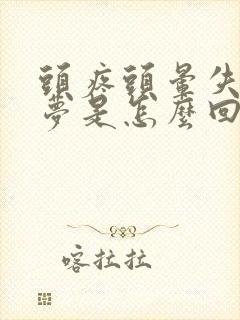 頭疼頭暈失
夢是怎麼回
喀拉拉